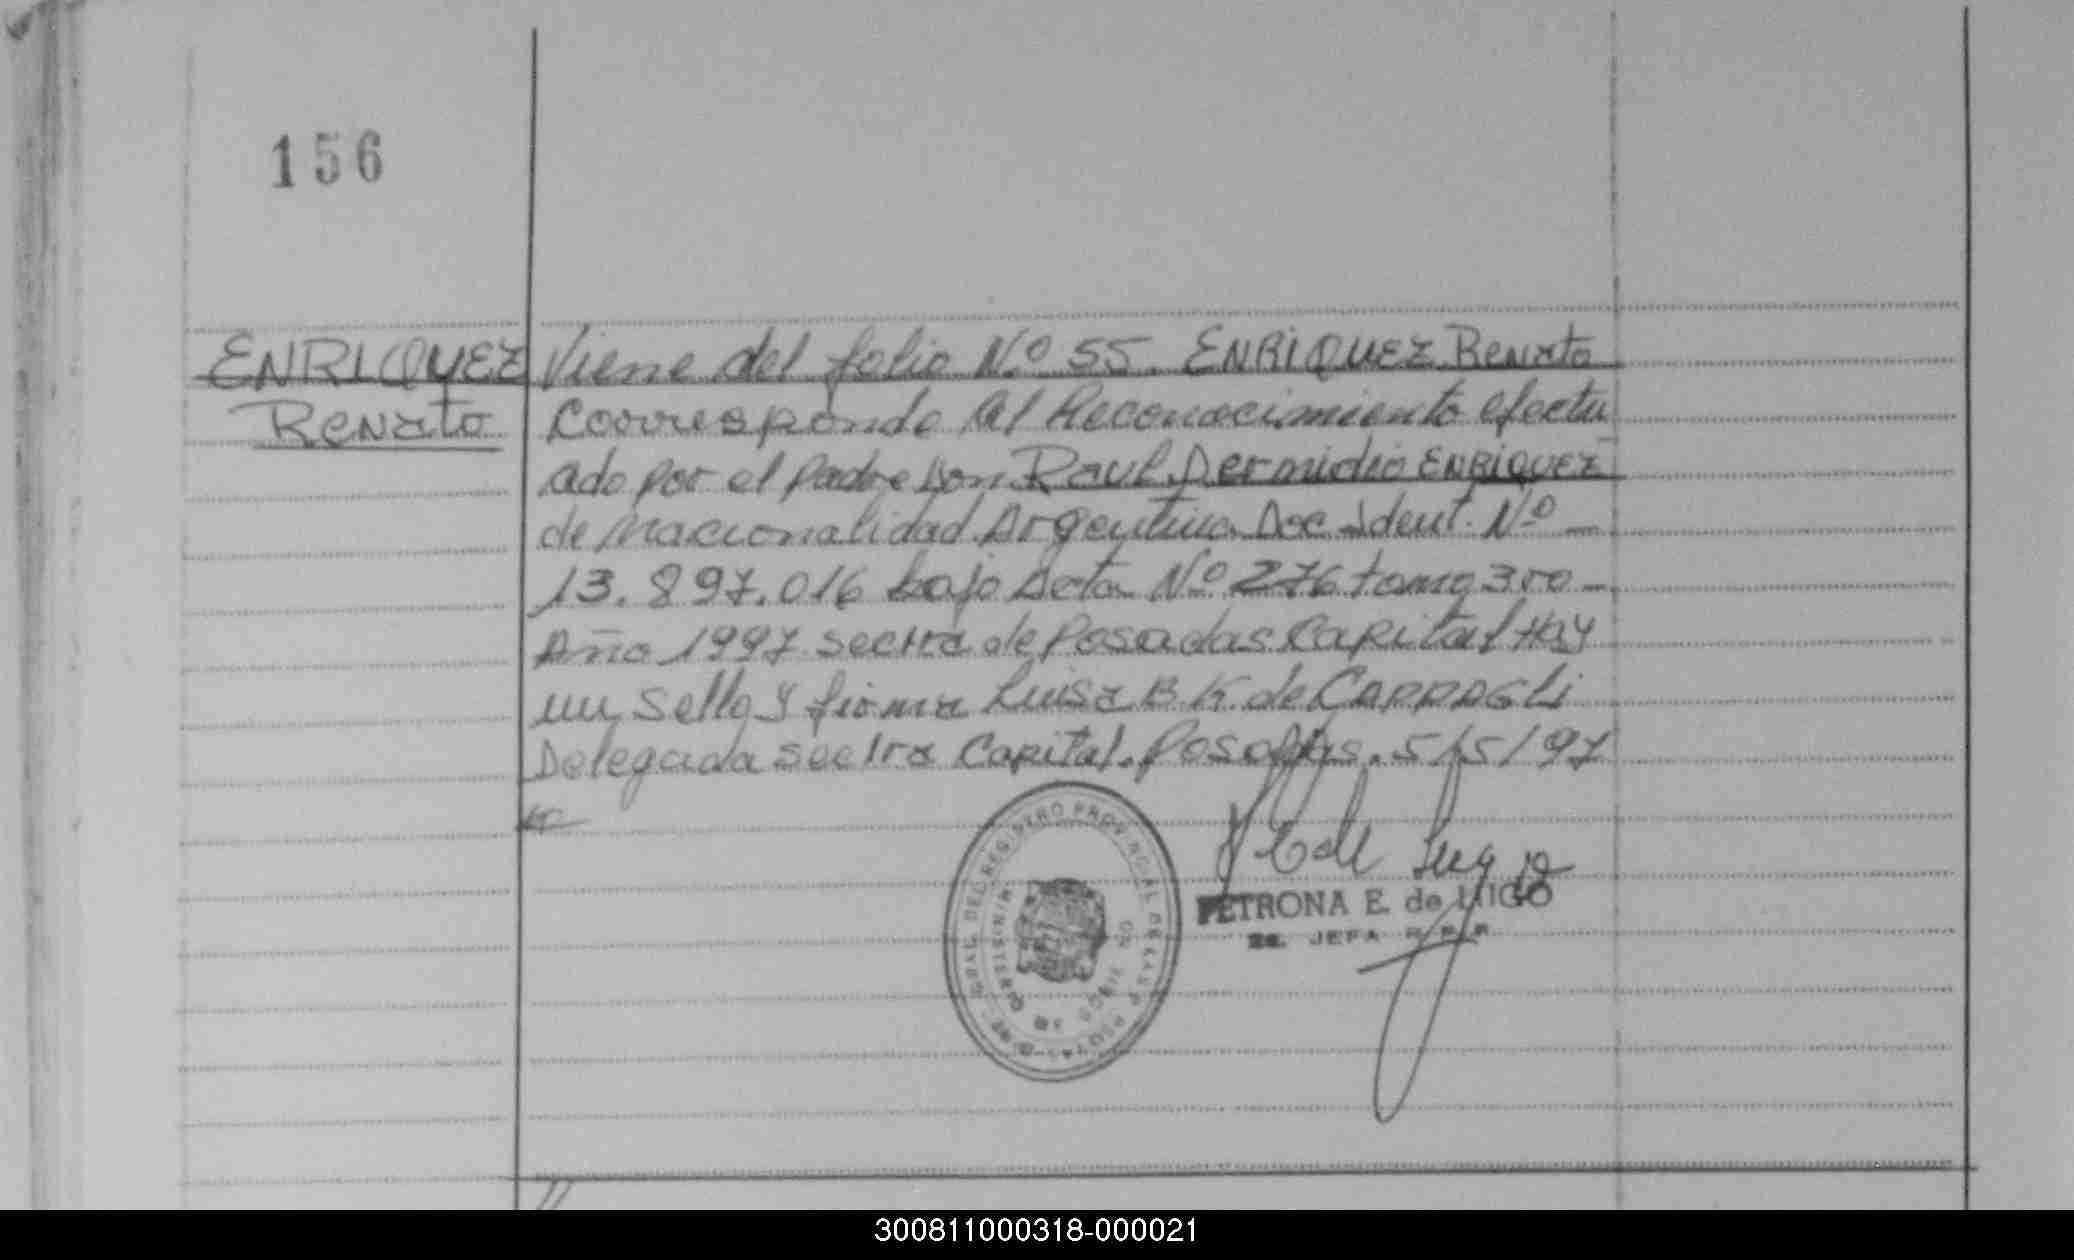 156
ENRIQUEZ
Renato
Viene del folio Nº 55. ENRIQUEZ Renato
Coorresponde al Reconocimiento efectu
ado por el padre Don Raul Dermidio ENRIQUEZ
de Nacionalidad Argentina Doc. Ident. Nº
13.897.016 bajo Acta Nº 276 tomo 3ro
Año 1997 secc 1ra de Posadas Capital Hay
un sello y firma Luisa B. K. de
Delegada secc 1ra Capital. Posadas. 5/5/97
GRAL DEL REGISTRO PROVINCIAL DE LAS P
MINISTERIO DE GOBIERNO
PETRONA E. de LUGO
JEFA
300811000318-000021